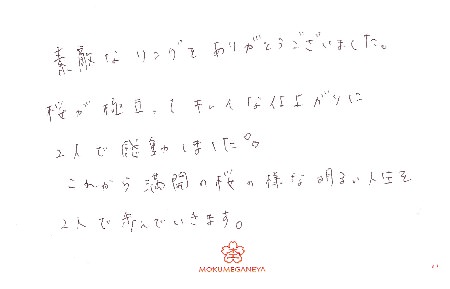 素敵なリングをありがとうございました。
桜が極立ち、きれいな仕上がりに
2人で感動しました。
これから満開の桜の様な明るい人生を
2人で歩んでいきます。
MOKUMEGANEYA